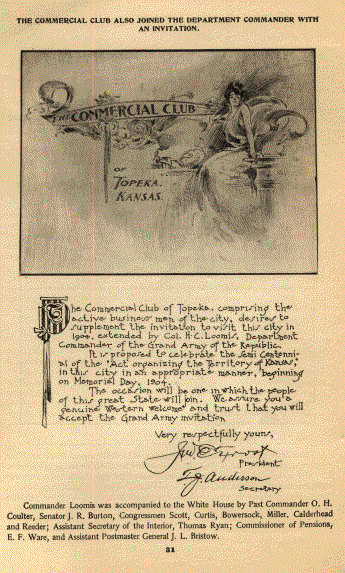 THE COMMERCIAL CLUB ALSO JOINED THE DEPARTMENT COMMANDER WITH
AN INVITATION.
THE COMMERCIAL CLUB
OF
TOPEKA.
KANSAS.
The Commercial Club of Topeka, comprising the
active business men of the city, desires to
supplement the invitation to visit this city in
1904, extended by Col. H.C. Loomis, Department
Commander of the Grand Army of the Republic.
It is proposed to celebrate the Semi Centenni-
al of the "Act organizing the Territory of Kansas,"
in this city in an appropriate manner, beginning
on Memorial Day, 1904.
The occasion will be one in which the people
of this great State will join. We assure you a
"genuine Western welcome" and trust that you will
accept the Grand Army invitation
Very respectfully yours,
President
T.J. Anderson
Secretary
Commander Loomis was accompanied to the White House by Past Commander O. H.
Coulter, Senator J. R. Burton, Congressmen Scott, Curtis, Bowersock, Miller, Calderhead
and Reeder; Assistant Secretary of the Interior, Thomas Ryan; Commissioner of Pensions,
E. F. Ware, and Assistant Postmaster General J. L. Bristow.
31